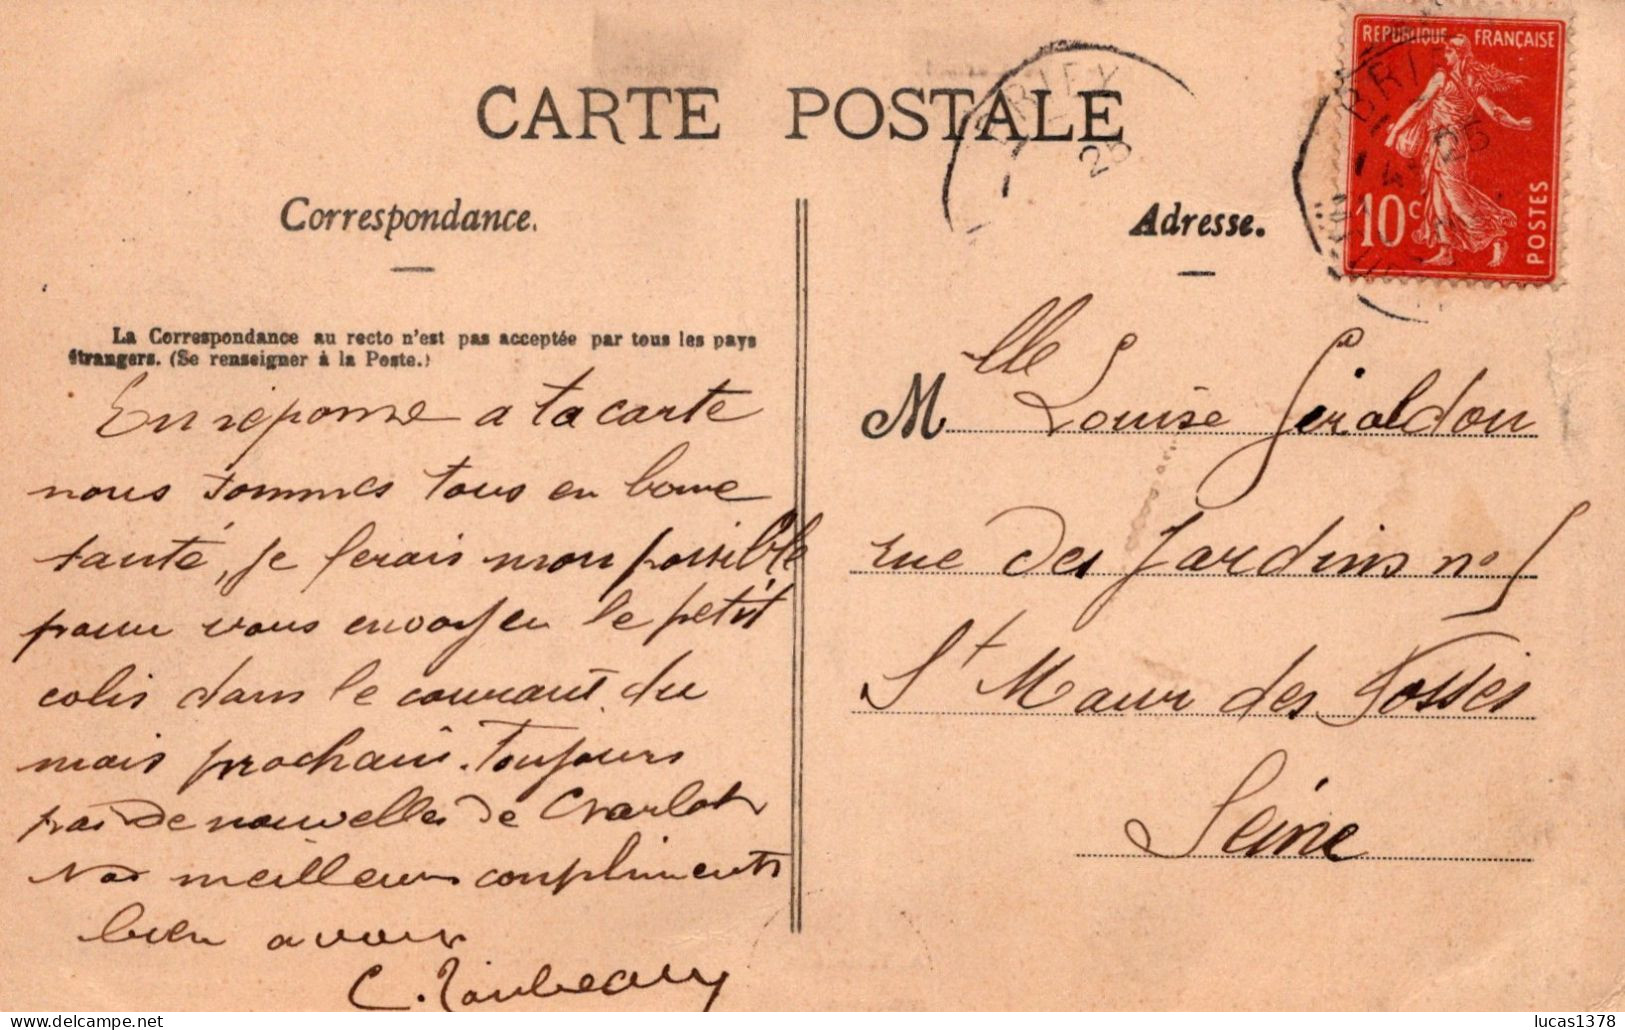 CARTE POSTALE
BRIEY
25
REPUBLIQUE FRANÇAISE
10c
POSTES
BRIEY
25
Correspondance.
Adresse.
La Correspondance au recto n'est pas acceptée par tous les pays
étrangers. (Se renseigner à la Poste.)
En réponse a ta carte
nous sommes tous en bonne
santé, je ferais mon possible
pour vous envoyer le petit
colis dans le courant du
mois prochain. Toujours
pas de nouvelles de Charlot
Nos meilleurs compliments
bien a vous
C.
Mlle Louise Giraldon
rue des Jardins no 5
St Maur des Fossés
Seine
lucas1378